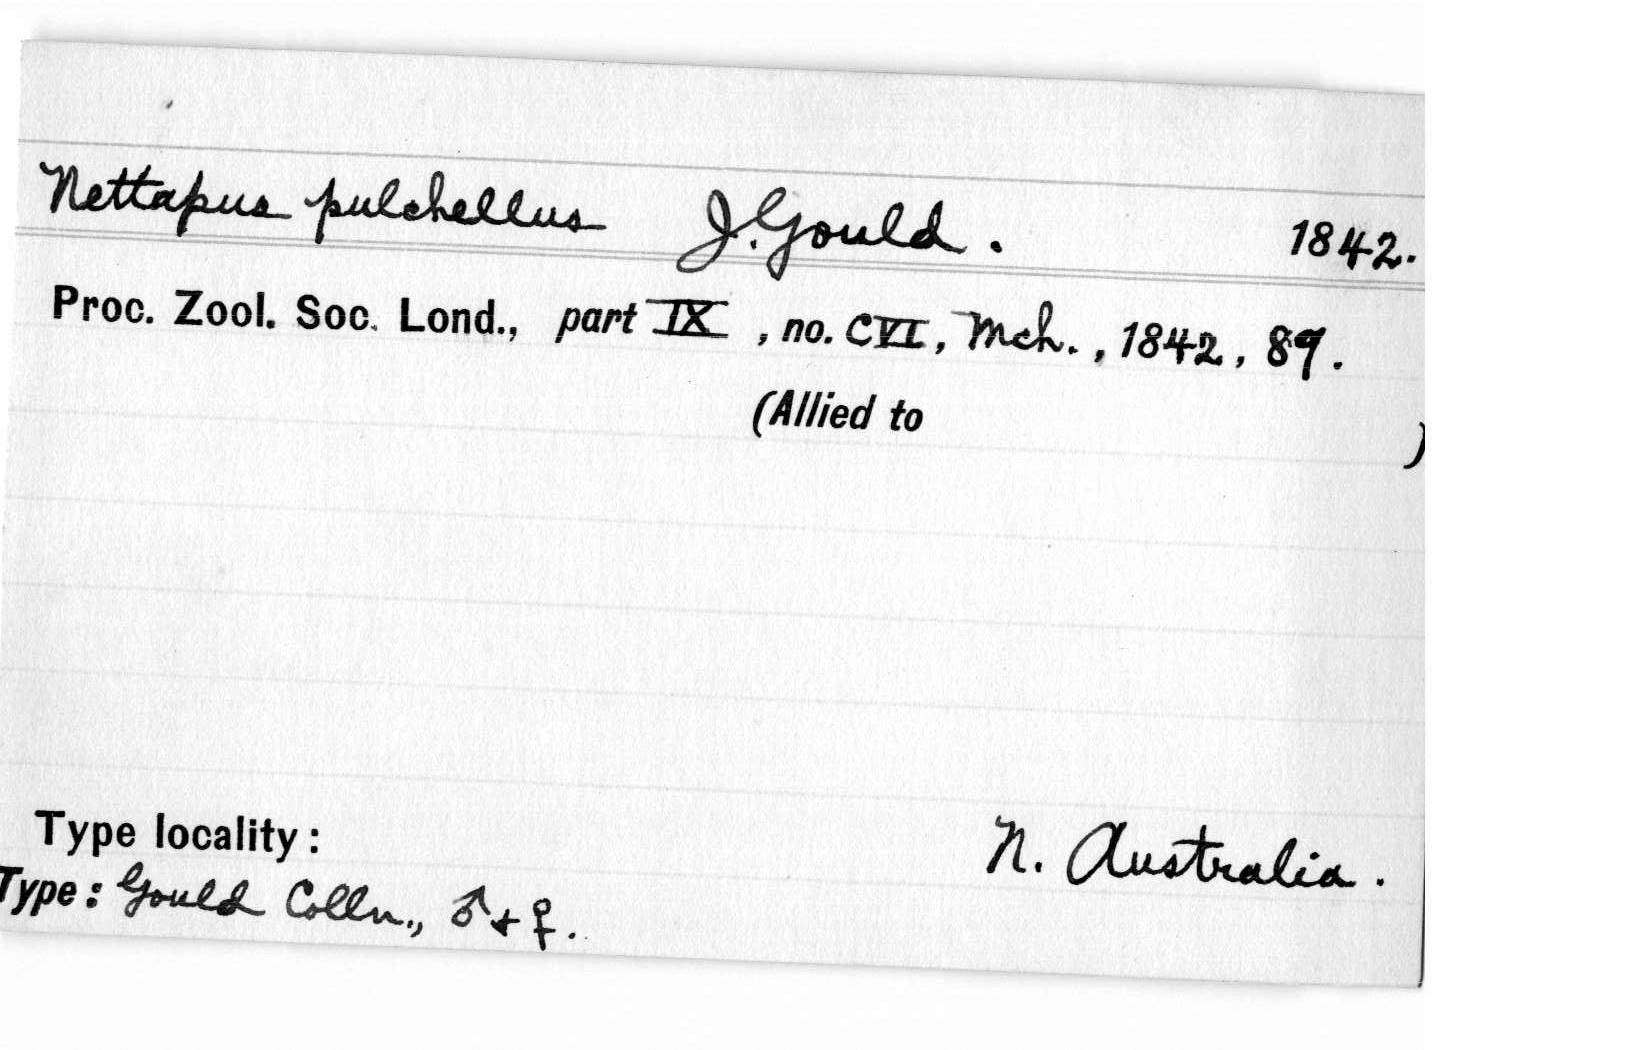 Nettapus pulchellus J. Gould. 1842.
Proc. Zool. Soc. Lond., part IX, no. CVI, Mch., 1842, 89.
(Allied to )
Type locality: N. Australia.
Type: Gould Colln., ♂ + ♀.